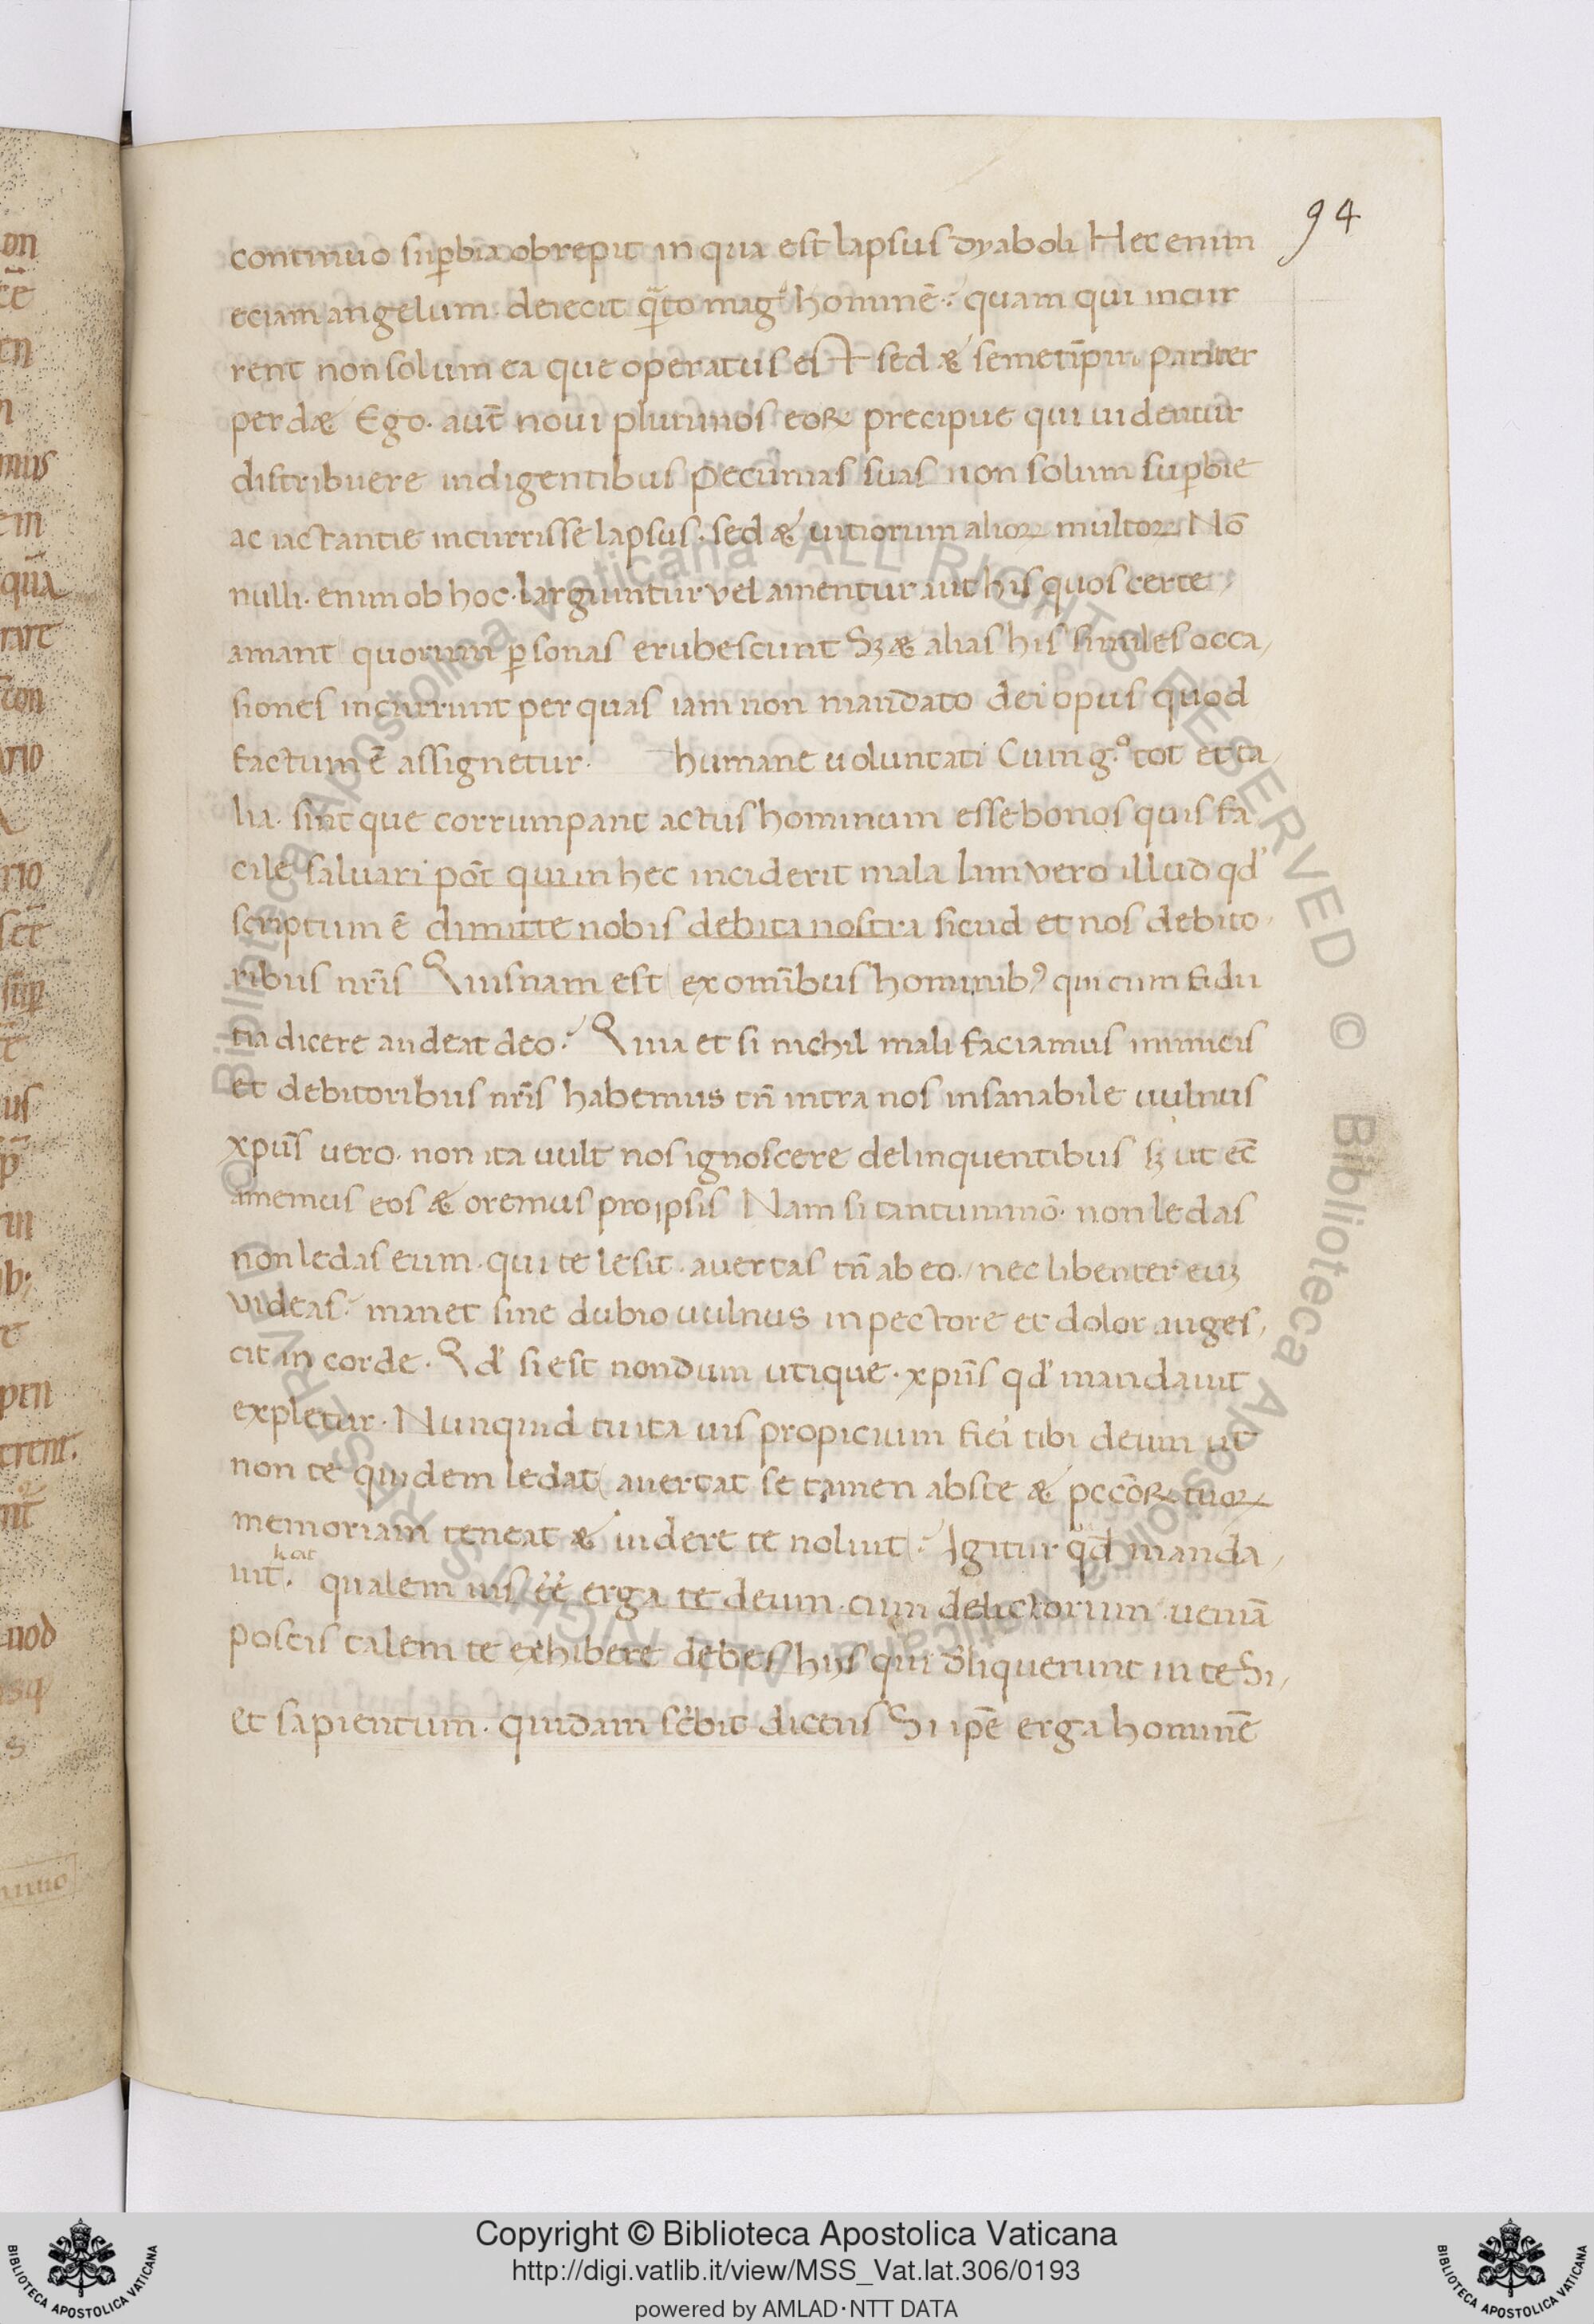 94
continuo sup̱bia obrepit in qua est lapsus dyaboli Hec enim
eciam angelum. deiecit q̃to magͥ hominē. quam qui incur
rent non solum ea que operatus est sed & semetip̄m pariter
perd& Ego. aut̄ novi plurimos eoꝝ precipue qui uidentur
distribuere indigentibus pecunias suas non solum sup̱bie
ac iactantie incurrisse lapsus. sed & uitiorum alioꝝ multoꝝ Nō
nulli. enim ob hoc. largiuntur vel amentur aut his quos certe
amant quorum ꝑsonas erubescunt Sꝫ & alias his similes occa,
siones incurrunt per quas iam non mandato dei opus quod
factum ē assignetur. humane uoluntati Cum g.ͦ tot et ta,
lia. sint que corrumpant actus hominum esse bonos quis fa
cile saluari pōt qui in hec inciderit mala Iam vero illud qd'
scriptum ē dimitte nobis debita nostra sicud et nos debito,
ribus nr̄is Quisnam est ex omībus hominibꝰ qui cum fidu
tia dicere audeat deo. Quia et si nichil mali faciamus inimicis
et debitoribus nr̄is habemus tn̄ intra nos insanabile uulnus
xpūs uero. non ita uult nos ignoscere delinquentibus sꝫ ut ec̄
amemus eos & oremus pro ipsis Nam si tantummō. non ledas
non ledas eum. qui te lesit. auertas tn̄ ab eo. nec libenter euꝫ
videas. manet sine dubio uulnus in pectore et dolor auges,
cit in corde. Qd' si est nondum utique. xpūs qd' mandauit
expletur. Nunquid tu ita uis propicium fiei tibi deum ut
non te quidem ledat auertat se tamen abs te & pccōꝝ tuoꝝ
memoriam teneat & uidere te noluit. Igitur qd manda,
uit. qualem uis ēē erga te deum. cum delictorum ueniā
poscis talem te exhibere debes hijs qui dliquerunt in te Si,
et sapientum. quidam sc̄bit dicens Si ipē erga hominē
Copyright © Biblioteca Apostolica Vaticana
http://digi.vatlib.it/view/MSS_Vat.lat.306/0193
powered by AMLAD·NTT DATA